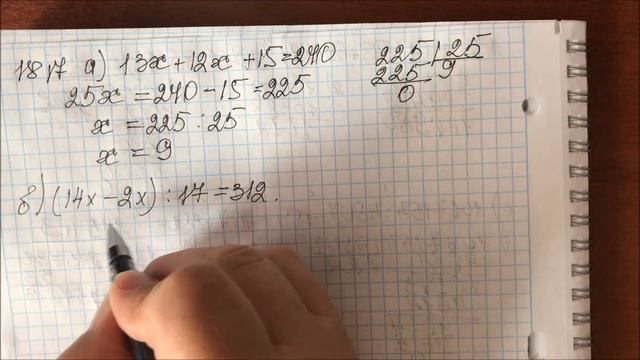 1817 а) 13x+12x+15=240
25x = 240-15=225
x = 225:25
x = 9
225 25
225 9
0
б) (14x-2x):17=312.